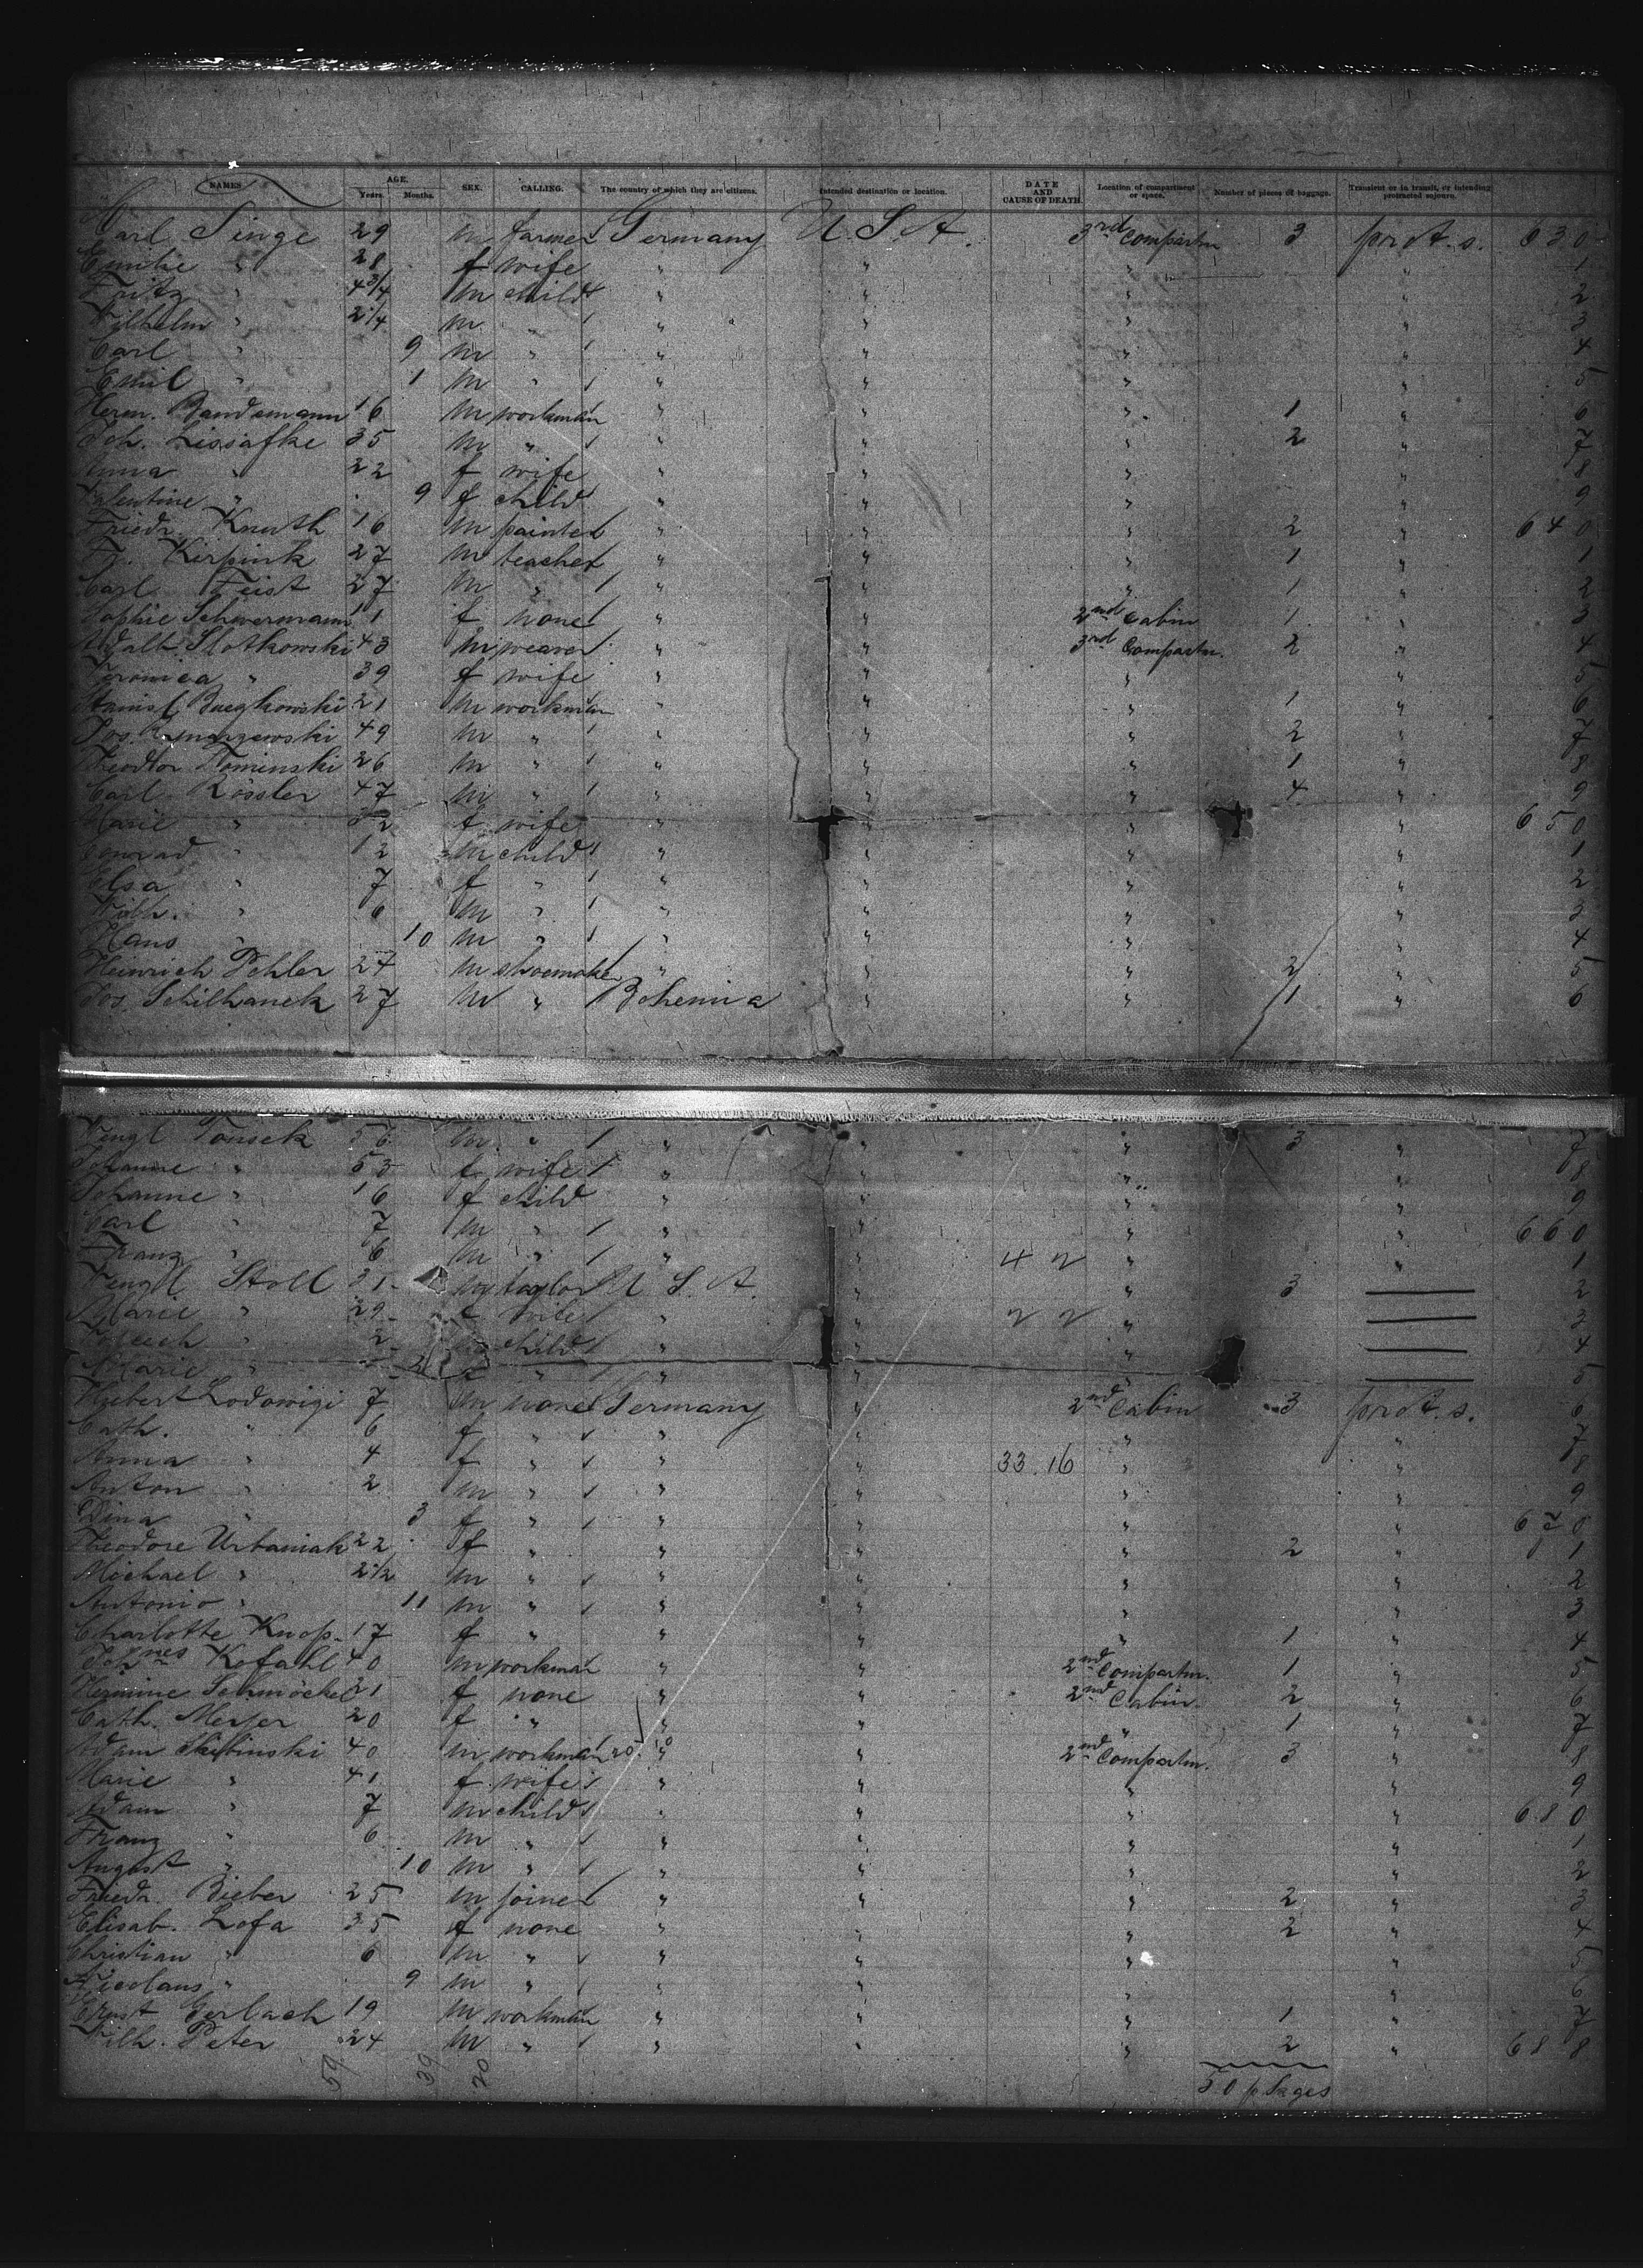 NAMES AGE. Years. Months. SEX. CALLING. The country of which they are citizens. Intended destination or location. DATE AND CAUSE OF DEATH. Location of compartment or space. Number of pieces of baggage. Transient or in transit, or intending protracted sojourn.
Carl Singe 29 m farmer Germany U. S. A. 3rd Compartm 3 prot. s. 630
Emilie " 28 f wife " " " " 1
Fritz " 4 3/4 m child " " " " 2
Wilhelm " 2 1/4 m " " " " " 3
Carl " 9 m " " " " " 4
Emil " 1 m " " " " " 5
Herm. Bandemann 16 m workman " " " 1 " 6
Joh. Lissafke 35 m " " " " 2 " 7
Anna " 22 f wife " " " " 8
Valentine " 9 f child " " " " 9
Friedr. Knuth 16 m painter " " " 2 " 640
Fr. Kirpink 27 m teacher " " " 1 " 1
Carl Feist 27 m " " " " 1 " 2
Sophie Schwermann 11 f none " " 2nd Cabin 1 " 3
Adalb. Slotkowski 43 m weaver " " 3rd Compartm. 2 " 4
Veronica " 39 f wife " " " " 5
Stanisl. 21 m workman " " " 1 " 6
Jos. 49 m " " " " 2 " 7
Theodor Tominski 26 m " " " " 1 " 8
Carl Rössler 47 m " " " " 4 " 9
Marie " 32 f wife " " " " 650
Conrad " 12 m child " " " " 1
Elsa " 7 f " " " " " 2
Wilh. " 6 m " " " " " 3
Hans " 10 m " " " " " 4
Heinrich Pehler 24 m shoemaker " " " 2 " 5
Jos. Schilhanek 27 m " Bohemia " " 1 " 6
Wenzl Tousek 56 m " " " " 3 " 7
Johanne " 53 f wife " " " " 8
Johanne " 16 f child " " " " 9
Carl " 7 m " " " " " 660
Franz " 6 m " " " 4 2 " " 1
Wenzl Stoll 31 m taylor U. S. A. " " 3 2
Marie " 29 f wife " " 2 2 " 3
" 2 child " " " 4
Marie " 2 f " " " " 5
Hubert Lodowigi 7 m none Germany " 2nd Cabin 3 prot. s. 6
Cath. " 6 f " " " " " 7
Anna " 4 f " " " 33.16 " " 8
Anton " 2 m " " " " " 9
Dina " 3 f " " " " " 670
Theodore Urbaniak 22 f " " " " 2 " 1
Michael " 2 1/2 m " " " " " 2
Antonio " 11 m " " " " " 3
Charlotte Knop. 17 f " " " " 1 " 4
Johnnes Kofahl 40 m workman " " 2nd Compartm. 1 " 5
Hermine Schmöckel 21 f none " " 2nd Cabin. 2 " 6
Cath. Meyer 20 f " " " " 1 " 7
Adam Skibinski 40 m workman " " 2nd Compartm. 3 " 8
Marie " 41 f wife " " " " 9
Adam " 7 m child " " " " 680
Franz " 6 m " " " " " 1
August " 10 m " " " " " 2
Friedr. Bieber 25 m joiner " " " 2 " 3
Elisab. Lofa 35 f none " " " 2 " 4
Christian " 6 m " " " " " 5
Nicolaus " 9 m " " " " " 6
Ernst Gerlach 19 m workman " " " 1 " 7
Wilh. Peter 24 m " " " " 2 " 688
59 39 20 50 p